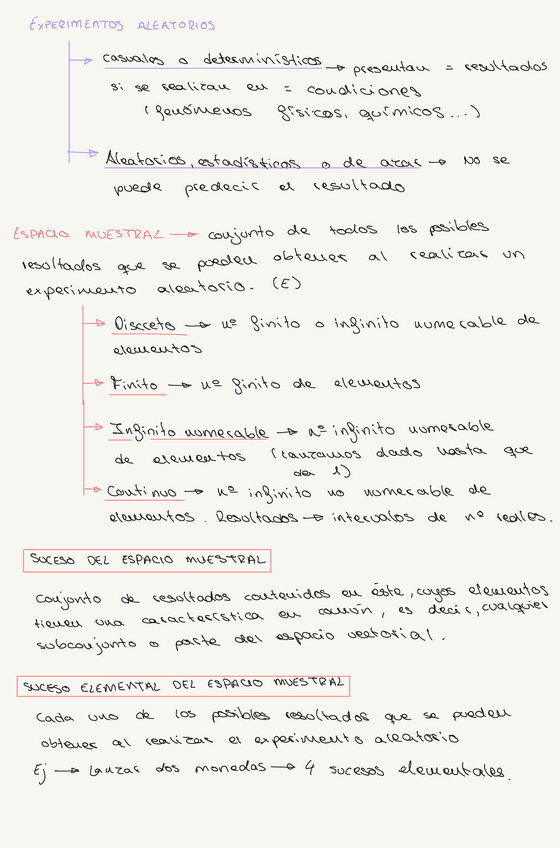 EXPERIMENTOS ALEATORIOS
casuales o determinísticos → presentan = resultados
si se realizan en = condiciones
(fenómenos físicos, químicos...)
Aleatorios, estadísticos o de azar → No se
puede predecir el resultado
ESPACIO MUESTRAL → conjunto de todos los posibles
resultados que se pueden obtener al realizar un
experimento aleatorio. (E)
Discreto → nº finito o infinito numerable de
elementos
Finito → nº finito de elementos
Infinito numerable → nº infinito numerable
de elementos (lanzamos dado hasta que
den 1)
Continuo → nº infinito no numerable de
elementos. Resultados → intervalos de nº reales.
SUCESO DEL ESPACIO MUESTRAL
Conjunto de resultados contenidos en éste, cuyos elementos
tienen una característica en común, es decir, cualquier
subconjunto o parte del espacio vectorial.
SUCESO ELEMENTAL DEL ESPACIO MUESTRAL
Cada uno de los posibles resultados que se pueden
obtener al realizar el experimento aleatorio
Ej → Lanzar dos monedas → 4 sucesos elementales.